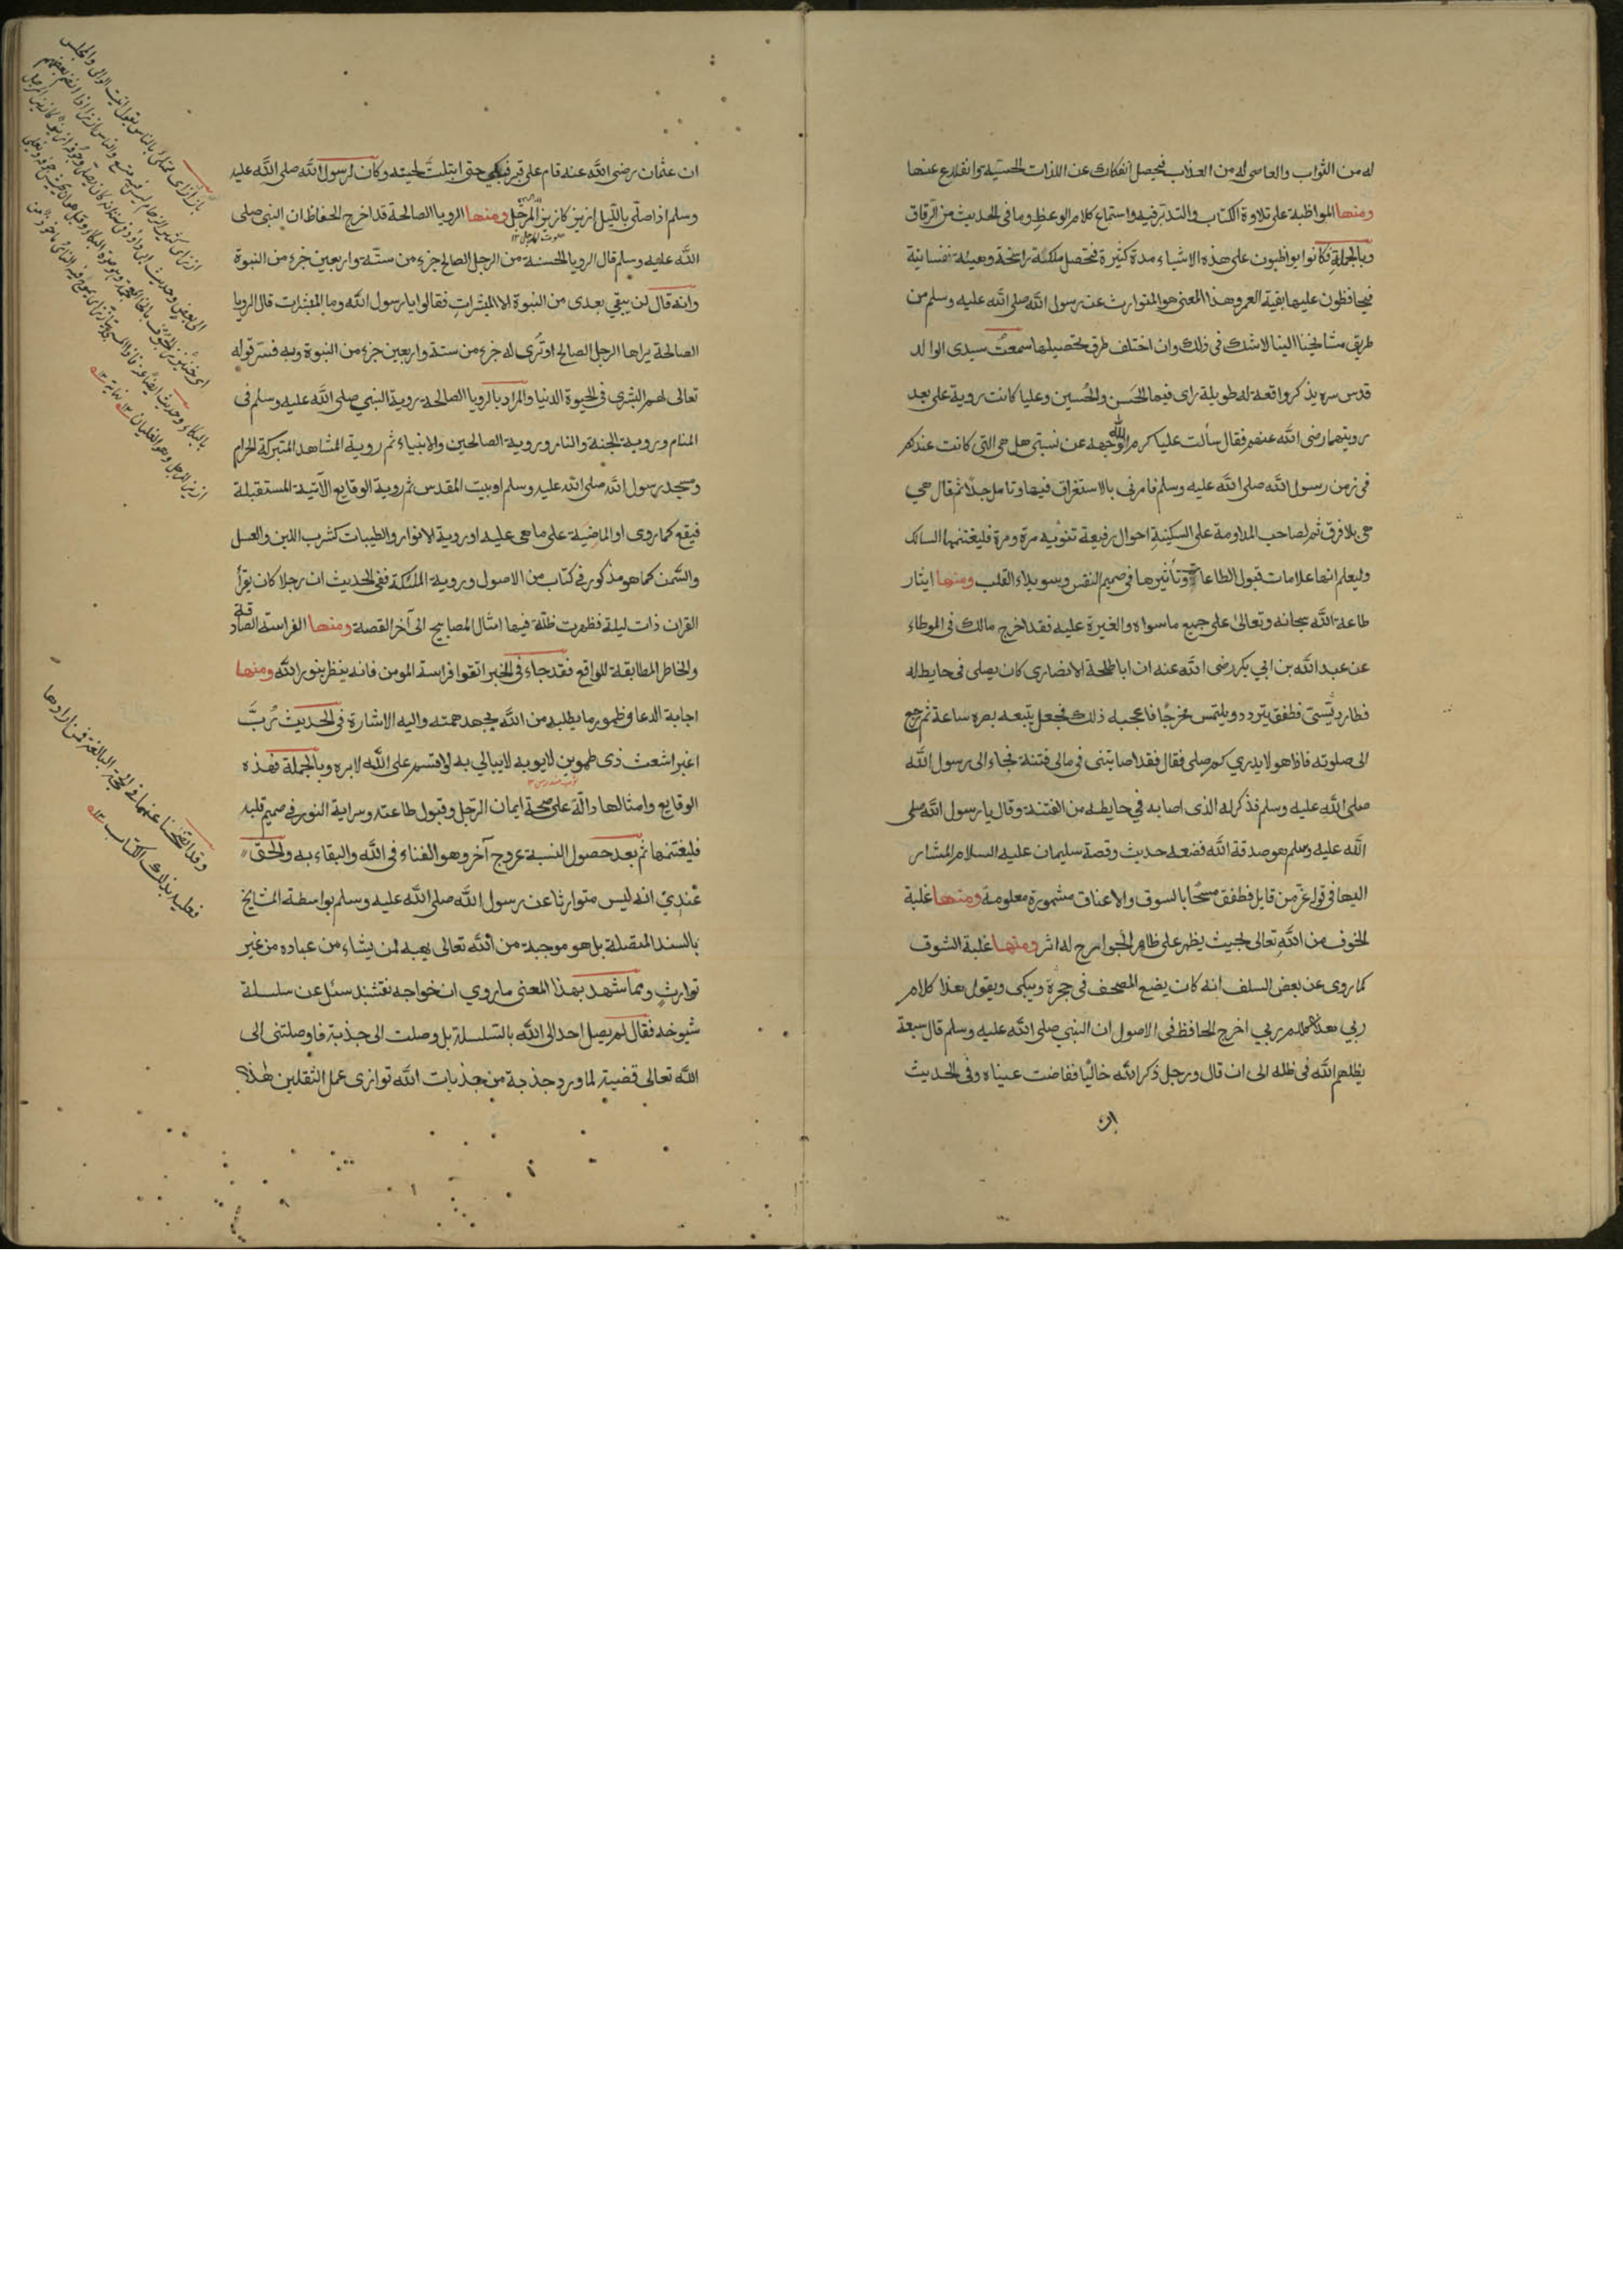 له من الثواب والعاصى له من العذاب فيحصل انفكاك عن اللذات الحسية وانقلاع عنها
ومنها المواظبة على تلاوة الكتاب والتدبر فيه واستماع كلام الوعظ وما فى الحديث من الرقاق
وبالجملة فكانوا يواظبون على هذه الاشياء مدة كثيرة فتحصل ملكة راسخة وهيئة نفسانية
فيحافظون عليها بقية العمر وهذا المعنى هو المتوارث عن رسول الله صلى الله عليه وسلم من
طريق مشايخنا الينا لاشك فى ذلك وان اختلف طرق تحصيلها سمعت سيدى الوالد
قدس سره يذكر واقعة له طويلة راى فيها الحَسن والحُسين وعليا كانت روية على بعد
رويتهما رضى الله عنهم فقال سألت عليا كرم الله وجهه عن نسبتى هل هى التى كانت عندكم
فى زمن رسول الله صلى الله عليه وسلم فامرنى بالاستغراق فيها وتامل جدًا ثم قال هى
هى بلا فرق ثم لصاحب المداومة على السكينة احوال رفيعة تنوبه مرة ومرة فليغتنمها السالك
وليعلم انها علامات قبول الطاعات وتأثيرها فى صميم النفس وسويداء القلب ومنها ايثار
طاعة الله سبحانه وتعالى على جميع ماسواه والغيرة عليه فقد اخرج مالك فى الموطاء
عن عبد الله بن ابي بكر رضى الله عنه ان ابا طلحة الانصارى كان يصلى فى حايط له
فطار دبسى فطفق يتردد ويلتمس مخرجًا فاعجبه ذلك فجعل يتبعه بصره ساعة ثم رجع
الى صلوته فاذا هو لايدري كم صلى فقال فقد اصابتنى فى مالى فتنة فجاء الى رسول الله
صلى الله عليه وسلم فذكر له الذى اصابه في حايطه من الفتنة وقال يا رسول الله صلى
الله عليه وسلم هو صدقة الله فضعه حديث وقصة سليمان عليه السلام المشار
اليها فى قوله عزّ من قايل فطفق مسحًا بالسوق والاعناق مشهورة معلومة ومنها غلبة
الخوف من الله تعالى بحيث يظهر على ظاهر الجوارح له اثر ومنها غلبة الشوق
كما روى عن بعض السلف انه كان يضع المصحف فى حجرة ويبكى ويقول هذا كلام
ربي اخرج الحافظ فى الاصول ان النبي صلى الله عليه وسلم قال سبعة
يظلهم الله فى ظله الى ان قال ورجل ذكر الله خاليًا ففاضت عيناه وفى الحديث
ان
ان عثمان رضى الله عنه قام على قبر فبكى حتى ابتلت لحيته وكان لرسول الله صلى الله عليه
وسلم اذا صلّى بالليل ازيز كازيز المرجل ومنها الرويا الصالحة قد اخرج الحفاظ ان النبى صلى
الله عليه وسلم قال الرويا الحسنة من الرجل الصالح جزء من ستة واربعين جزء من النبوة
وانه قال لن يبقي بعدى من النبوة الا المبشرات فقالوا يا رسول الله وما المبشرات قال الرويا
الصالحة يراها الرجل الصالح او تُرى له جزء من ستة واربعين جزء من النبوة وبه فسّر قوله
تعالى لهم البشرى فى الحيوة الدنيا والمراد بالرويا الصالحة روية النبي صلى الله عليه وسلم فى
المنام وروية الجنة والنار وروية الصالحين والانبياء ثم روية المشاهد المتبركة الحرام
ومسجد رسول الله صلى الله عليه وسلم او بيت المقدس ثم روية الوقايع الآتية المستقبلة
فيقع كما روى او الماضية على ما هى عليه او روية الانوار والطيبات كشرب اللبن والعسل
والسّمن كما هو مذكور فى كتاب من الاصول وروية الملئكة ففى الحديث ان رجلا كان يقرأ
القران ذات ليلة فظهرت ظلّة فيها امثال المصابيح الى آخر القصة ومنها الفراسة الصادقة
والخاطر المطابقة للواقع فقد جاء فى الخبر اتقوا فراسة المومن فانه ينظر بنور الله ومنها
اجابة الدعا وظهور ما يطلبه من الله بجهد همته واليه الاشارة فى الحديث رُبَّ
اغبر اشعث ذى طمرين لايوبه لايبالي به لو اقسم على الله لابره وبالجملة فهذه
الوقايع وامثالها دالّة على صحة ايمان الرّجل وقبول طاعته وسراية النور فى صميم قلبه
فليغتنمها ثم بعد حصول النسبة عروج آخر وهو الفناء فى الله والبقاء به والحق
عندي انه ليس متوارثا عن رسول الله صلى الله عليه وسلم بواسطة المشايخ
بالسند المتصلة بل هو موهبة من الله تعالى يهبه لمن يشاء من عباده من غير
توارثٍ ومما شهد بهذا المعنى ما روي ان خواجه نقشبند سئل عن سلسلة
شيوخه فقال لم يصل احد الى الله بالسلسلة بل وصلت الى جذبة فاوصلتنى الى
الله تعالى قضية لما ورد جذبة من جذبات الله توازى عمل الثقلين هذا